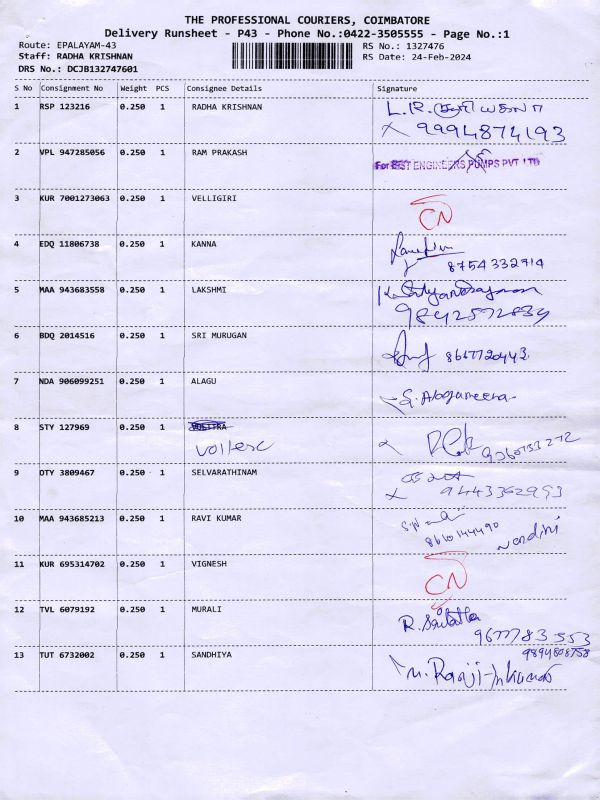 THE PROFESSIONAL COURIERS, COIMBATORE
Delivery Runsheet - P43 - Phone No.:0422-3505555 - Page No.:1
Route: EPALAYAM-43 RS No.: 1327476
Staff: RADHA KRISHNAN RS Date: 24-Feb-2024
DRS No.: DCJB132747601
S No Consignment No Weight PCS Consignee Details Signature
1 RSP 123216 0.250 1 RADHA KRISHNAN
X 9994874193
2 VPL 947285056 0.250 1 RAM PRAKASH
For BEST ENGINEERS PUMPS PVT LTD
3 KUR 7001273063 0.250 1 VELLIGIRI CN
4 EDQ 11806738 0.250 1 KANNA
8754332914
5 MAA 943683558 0.250 1 LAKSHMI
9842572839
6 BDQ 2014516 0.250 1 SRI MURUGAN
7 NDA 906099251 0.250 1 ALAGU
8 STY 127969 0.250 1
9 OTY 3809467 0.250 1 SELVARATHINAM
X 9443362993
10 MAA 943685213 0.250 1 RAVI KUMAR
8610144490 Nandini
11 KUR 695314702 0.250 1 VIGNESH CN
12 TVL 6079192 0.250 1 MURALI
9677783553
13 TUT 6732002 0.250 1 SANDHIYA 9894608758